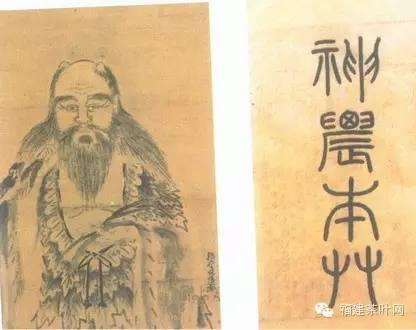 神農本艸
福建茶叶网